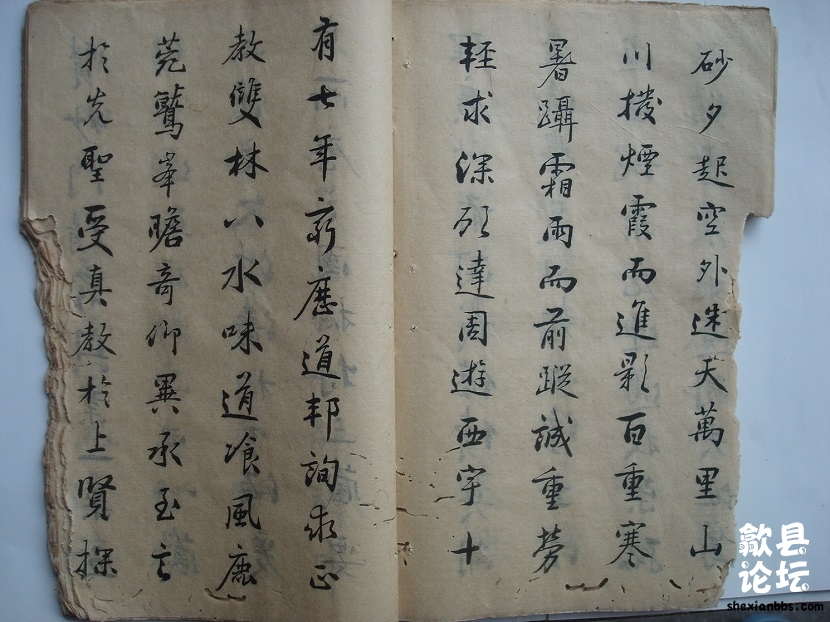 砂夕起空外迷天萬里山
川撥煙霞而進影百重寒
暑躡霜雨而前蹤誠重勞
輕求深願達周遊西宇十
有七年窮歷道邦詢求正
教雙林八水味道飡風鹿
菀鷲峯瞻奇仰異承至言
於先聖受真教於上賢探
歙县
论坛
shexianbbs.com